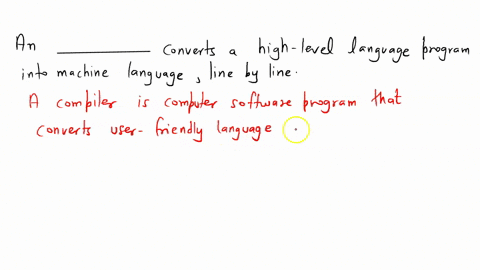 An __________ converts a high-level language program
into machine language, line by line.
A compiler is computer software program that
converts user-friendly language